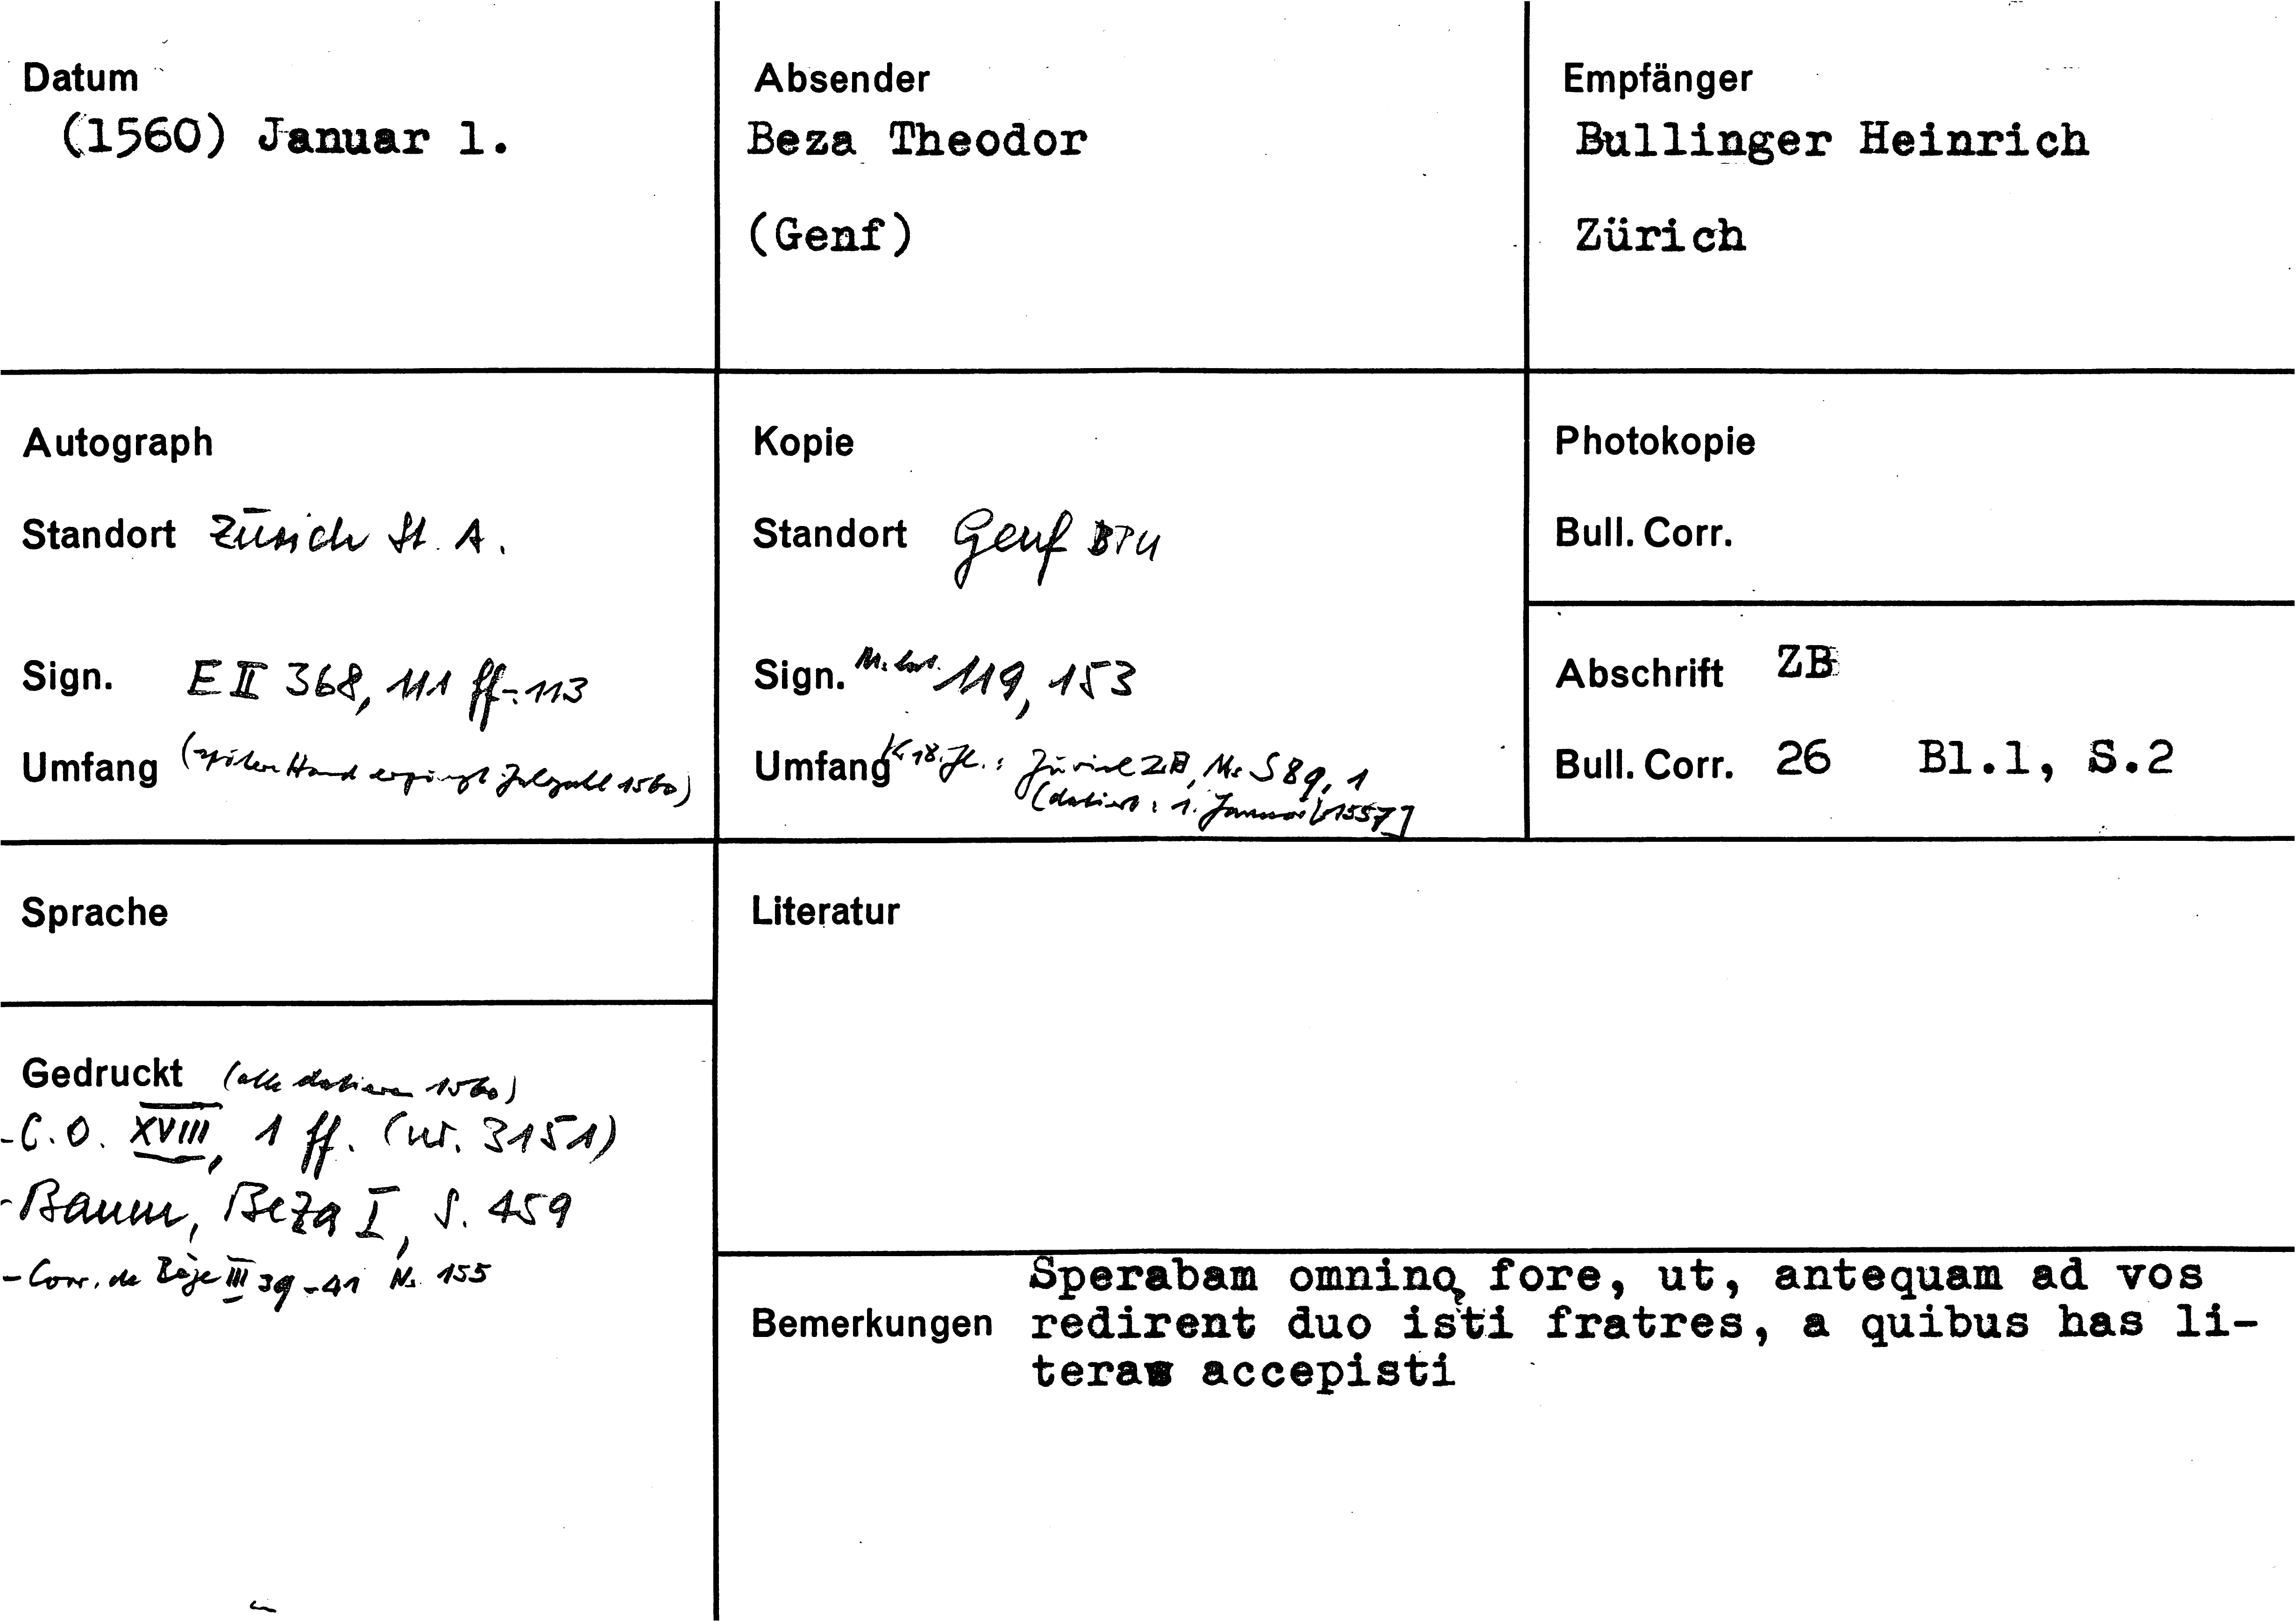 Datum
(1560) Januar 1.
Absender
Beza Theodor
(Genf)
Empfänger
Bullinger Heinrich
Zürich
Autograph
Standort Zürich St. A.
Sign. E II 368, 111 ff-113
Umfang (späterer Hand ergänzt Jahrzahl 1560)
Kopie
Standort Genf BPU
Sign. Ms. lat. 119, 153
Umfang K 18. Jh.: Zürich ZB, Ms S 89, 1
(datiert: 1. Januar [1557]
Photokopie
Bull. Corr.
Abschrift ZB
Bull. Corr. 26 Bl.1, S.2
Sprache
Gedruckt (alle datieren 1560)
- C.O. XVIII, 1 ff. (nr. 3151)
- Baum, Beza I, S. 459
- Corr. de Bèze III 39-41 No 155
Literatur
Bemerkungen
Sperabam omnino fore, ut, antequam ad vos
redirent duo isti fratres, a quibus has li-
teras accepisti